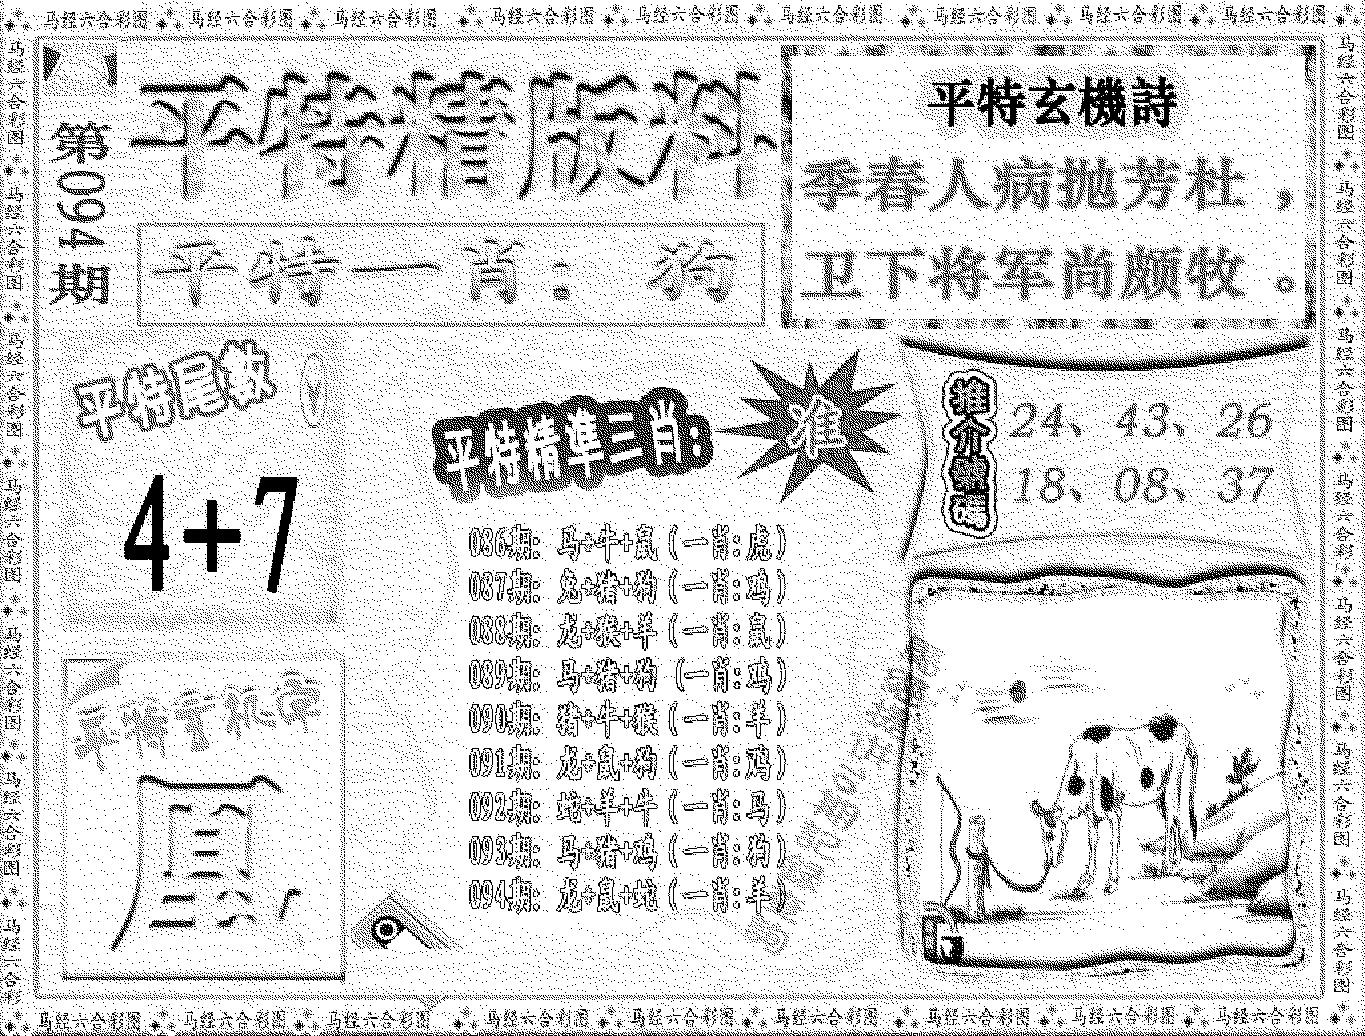 马经六合彩图 马经六合彩图 马经六合彩图 马经六合彩图 马经六合彩图 马经六合彩图 马经六合彩图 马经六合彩图 马经六合彩图
第094期
平特精版料
平特一肖：狗
平特玄機詩
季春人病抛芳杜，
卫下将军尚颇牧。
平特尾数
4+7
平特精準三肖:
准
086期: 马+牛+鼠(一肖:虎)
087期: 兔+猪+狗(一肖:鸡)
088期: 龙+猴+羊(一肖:鼠)
089期: 马+猪+狗(一肖:鸡)
090期: 猪+牛+猴(一肖:羊)
091期: 龙+鼠+狗(一肖:鸡)
092期: 蛇+羊+牛(一肖:马)
093期: 马+猪+鸡(一肖:狗)
094期: 龙+鼠+蛇(一肖:羊)
24、43、26
18、08、37
平特玄机字
马经六合彩图 马经六合彩图 马经六合彩图 马经六合彩图 马经六合彩图 马经六合彩图 马经六合彩图 马经六合彩图 马经六合彩图